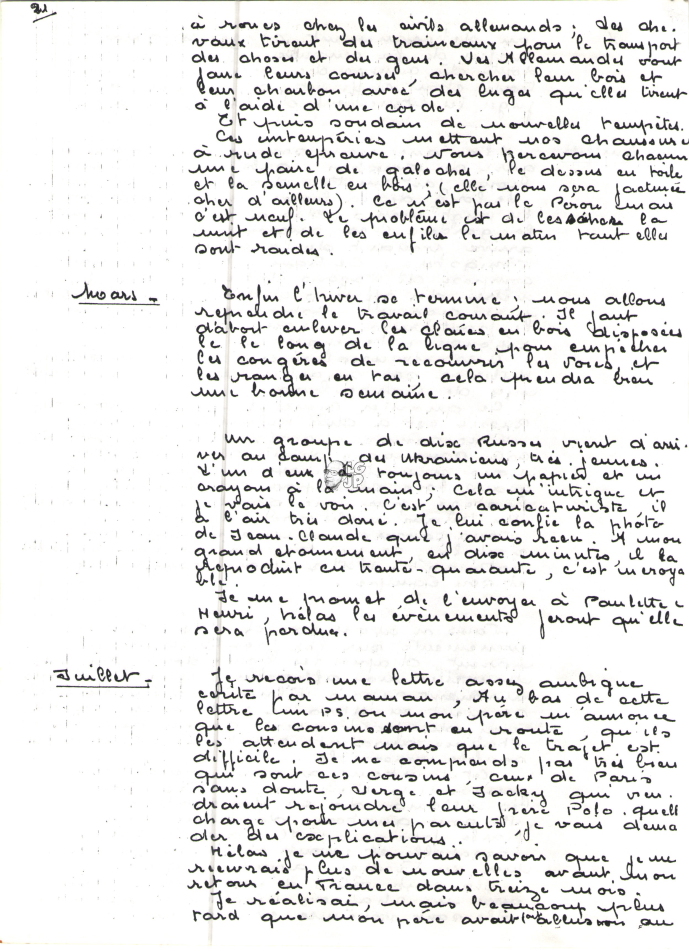 21
à roues chez les civils allemands ; des che-
vaux tirent des traineaux pour le transport
des choses et des gens. Des Allemandes vont
faire leurs courses, chercher leur bois et
leur charbon avec des luges qu'elles tirent
à l'aide d'une corde.
Et puis soudain de nouvelles tempêtes.
Ces intempéries mettent nos chaussures
à rude épreuve. Nous percevons chacun
une paire de galoches, le dessus en toile
et la semelle en bois ; (elle nous sera facturée
cher d'ailleurs). Ce n'est pas le Pérou mais
c'est neuf. Le problème est de les sécher la
nuit et de les enfiler le matin tant elles
sont raides.
Mars - Enfin l'hiver se termine ; nous allons
reprendre le travail courant. Il faut
d'abort enlever les claies en bois disposées
le le long de la ligne pour empêcher
les congères de recouvrir les voies, et
les ranger en tas ; cela prendra bien
une bonne semaine.
Un groupe de dix Russes vient d'arri-
ver au camp, des Ukrainiens, très jeunes.
L'un d'eux a toujours un papier et un
crayon à la main ; Cela m'intrigue et
je vais le voir. C'est un caricaturiste, il
a l'air très doué. Je lui confie la photo
de Jean-Claude que j'avais reçu. A mon
grand étonnement, en dix minutes, il la
reproduit en trente-quarante, c'est incroya-
ble.
CG JP
Je me promet de l'envoyer à Paulette &
Henri, hélas les évènements feront qu'elle
sera perdue.
Juillet - Je reçois une lettre assez ambigue
écrite par maman, Au bas de cette
lettre un PS. ou mon père m'annonce
que les cousins sont en route, qu'ils
les attendent mais que le trajet est
difficile. Je ne comprends pas très bien
qui sont ces cousins, ceux de Paris
sans doute, Serge et Jacky qui vien-
draient rejoindre leur frère Polo. quelle
charge pour mes parents, je vais deman
der des explications.
Hélas je ne pouvais savoir que je ne
recevrais plus de nouvelles avant mon
retour en France dans treize mois.
Je réalisai, mais beaucoup plus
tard que mon père avait fait allusion au